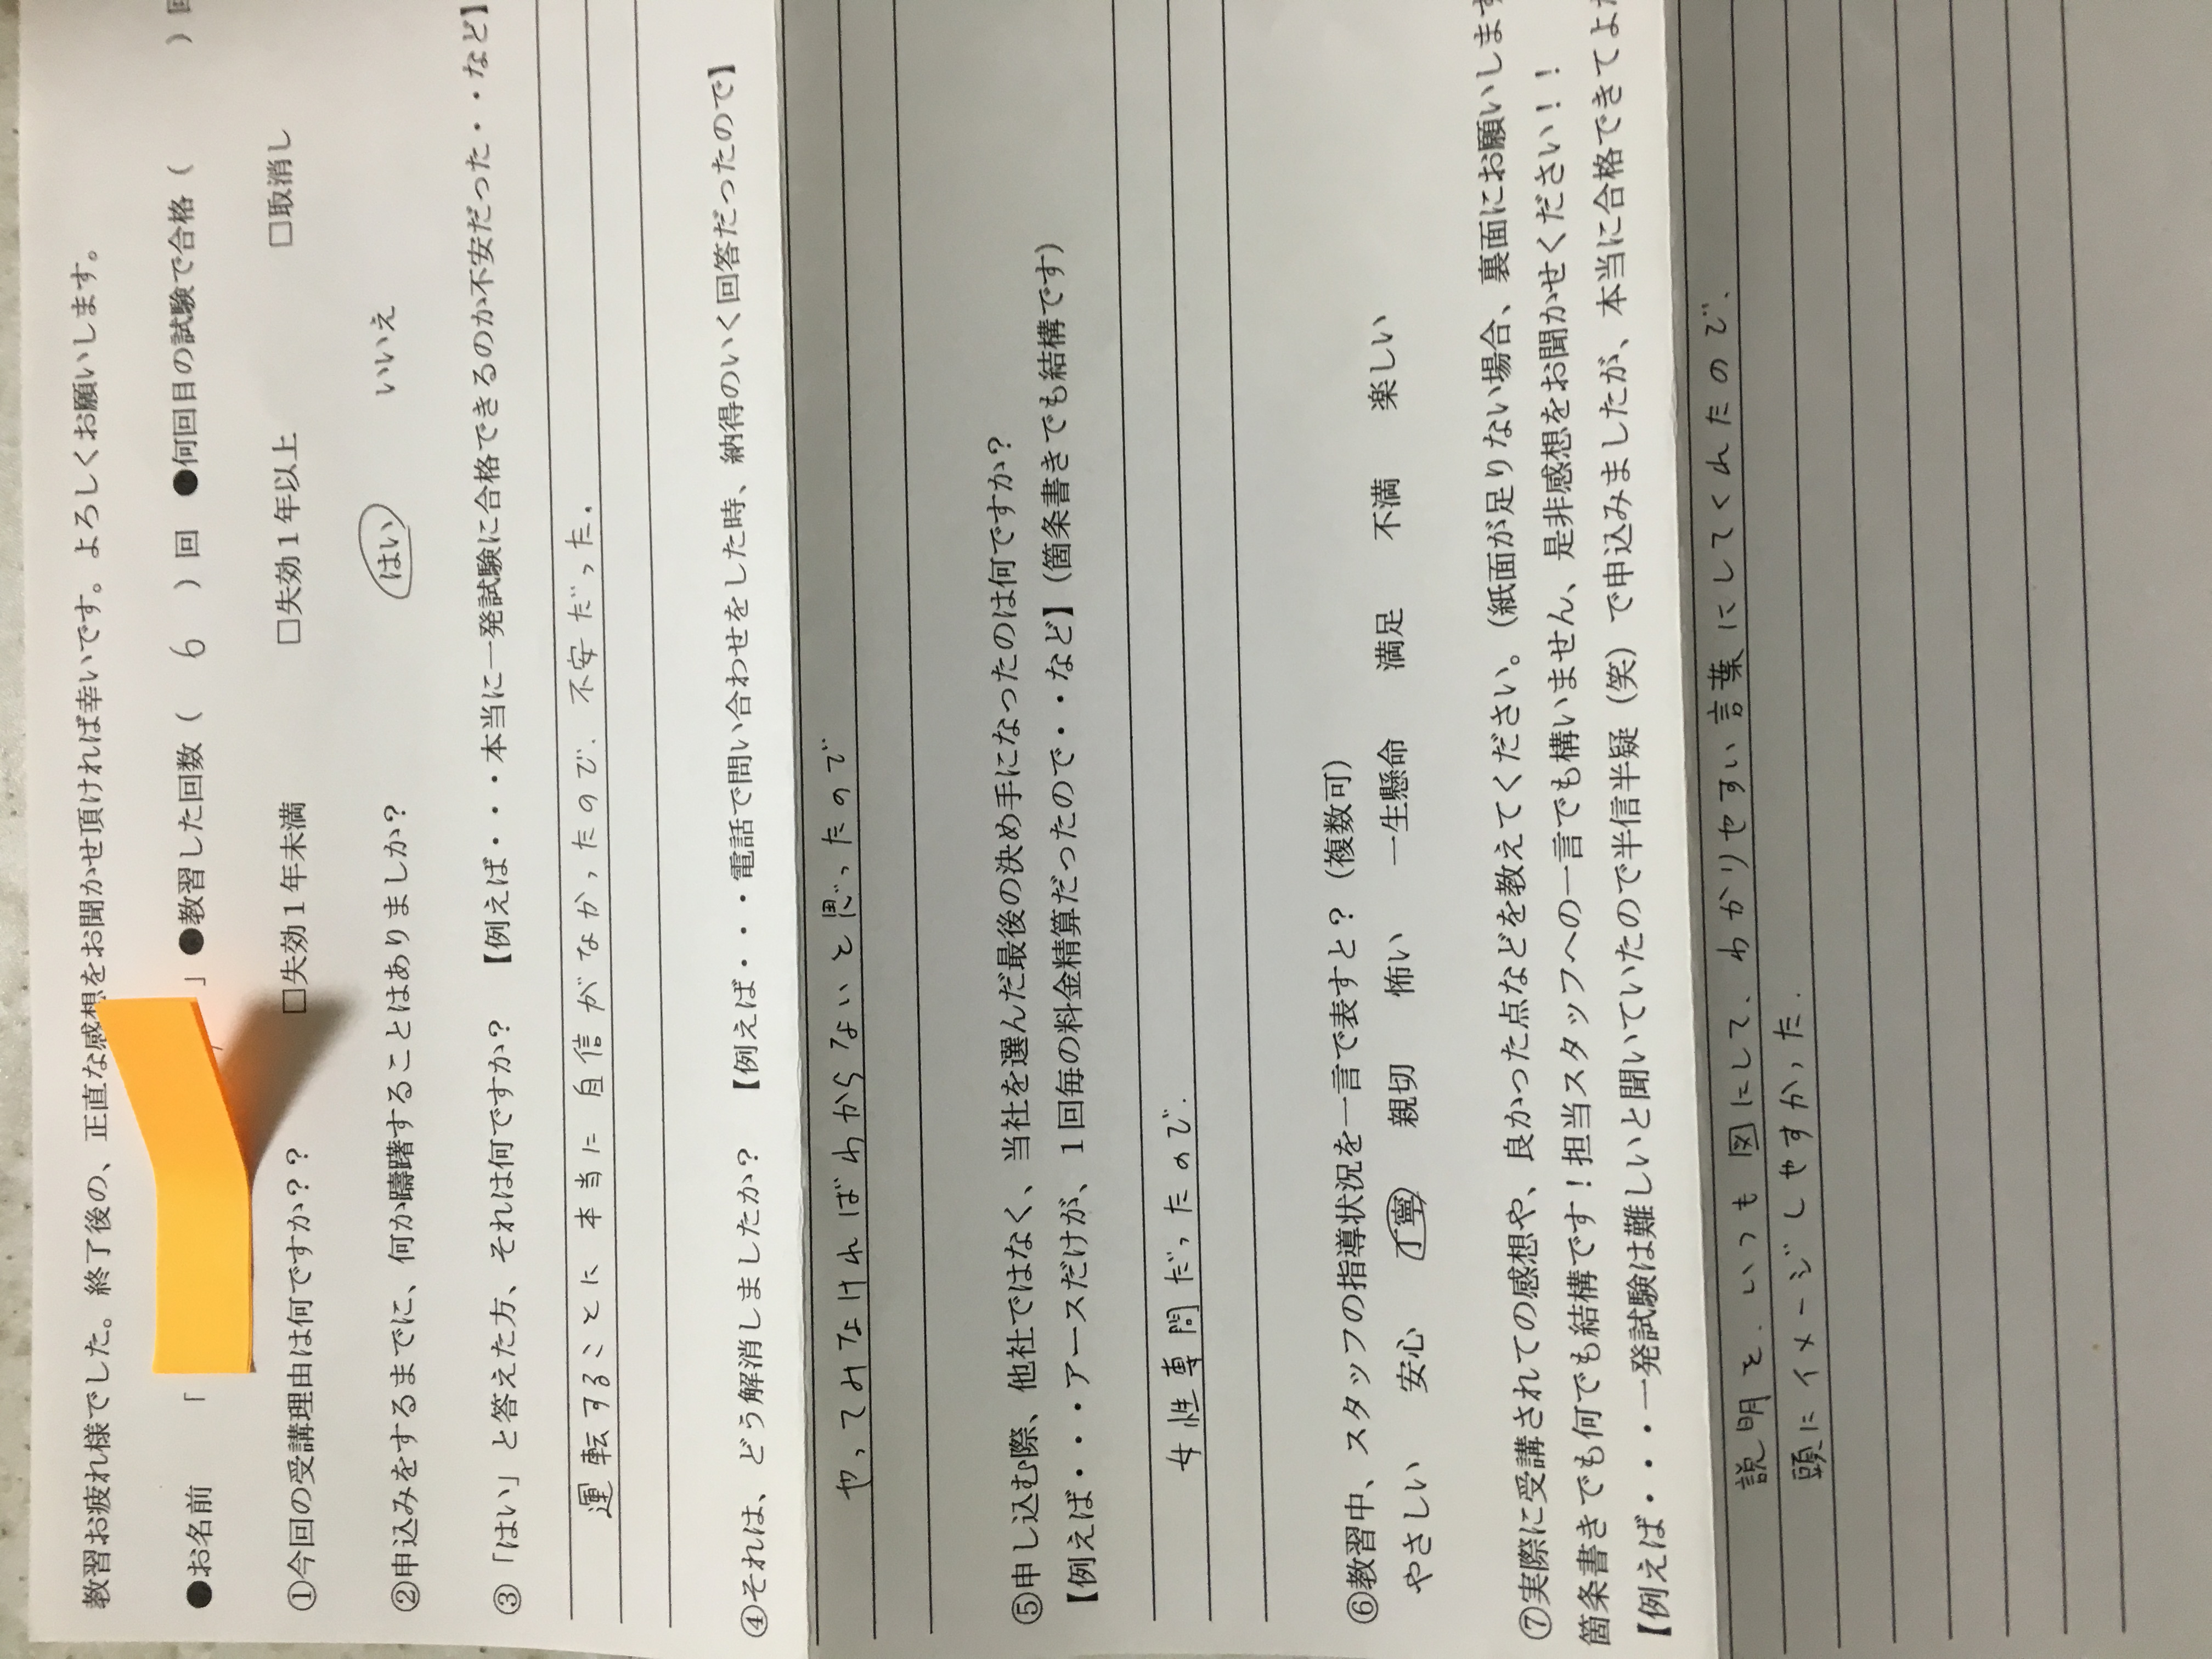 教習お疲れ様でした。終了後の、正直な感想をお聞かせ頂ければ幸いです。よろしくお願いします。
●お名前 「 」●教習した回数( 6 )回 ●何回目の試験で合格( )回
①今回の受講理由は何ですか?? □失効1年未満 □失効1年以上 □取消し
②申込みをするまでに、何か躊躇することはありましか? はい いいえ
③「はい」と答えた方、それは何ですか? 【例えば・・・本当に一発試験に合格できるのか不安だった・・など】
運転することに本当に自信がなかったので、不安だった。
④それは、どう解消しましたか? 【例えば・・・電話で問い合わせをした時、納得のいく回答だったので】
やってみなければわからないと思ったので
⑤申し込む際、他社ではなく、当社を選んだ最後の決め手になったのは何ですか?
【例えば・・・アースだけが、1回毎の料金精算だったので・・など】(箇条書きでも結構です)
女性専門だったので.
⑥教習中、スタッフの指導状況を一言で表すと?(複数可)
やさしい 安心 丁寧 親切 怖い 一生懸命 満足 不満 楽しい
⑦実際に受講されての感想や、良かった点などを教えてください。(紙面が足りない場合、裏面にお願いします
箇条書きでも何でも結構です!担当スタッフへの一言でも構いません、是非感想をお聞かせください!!
【例えば・・・一発試験は難しいと聞いていたので半信半疑(笑)で申込みましたが、本当に合格できてよ
説明を.いつも図にして、わかりやすい言葉にしてくれたので.
頭にイメージしやすかった.